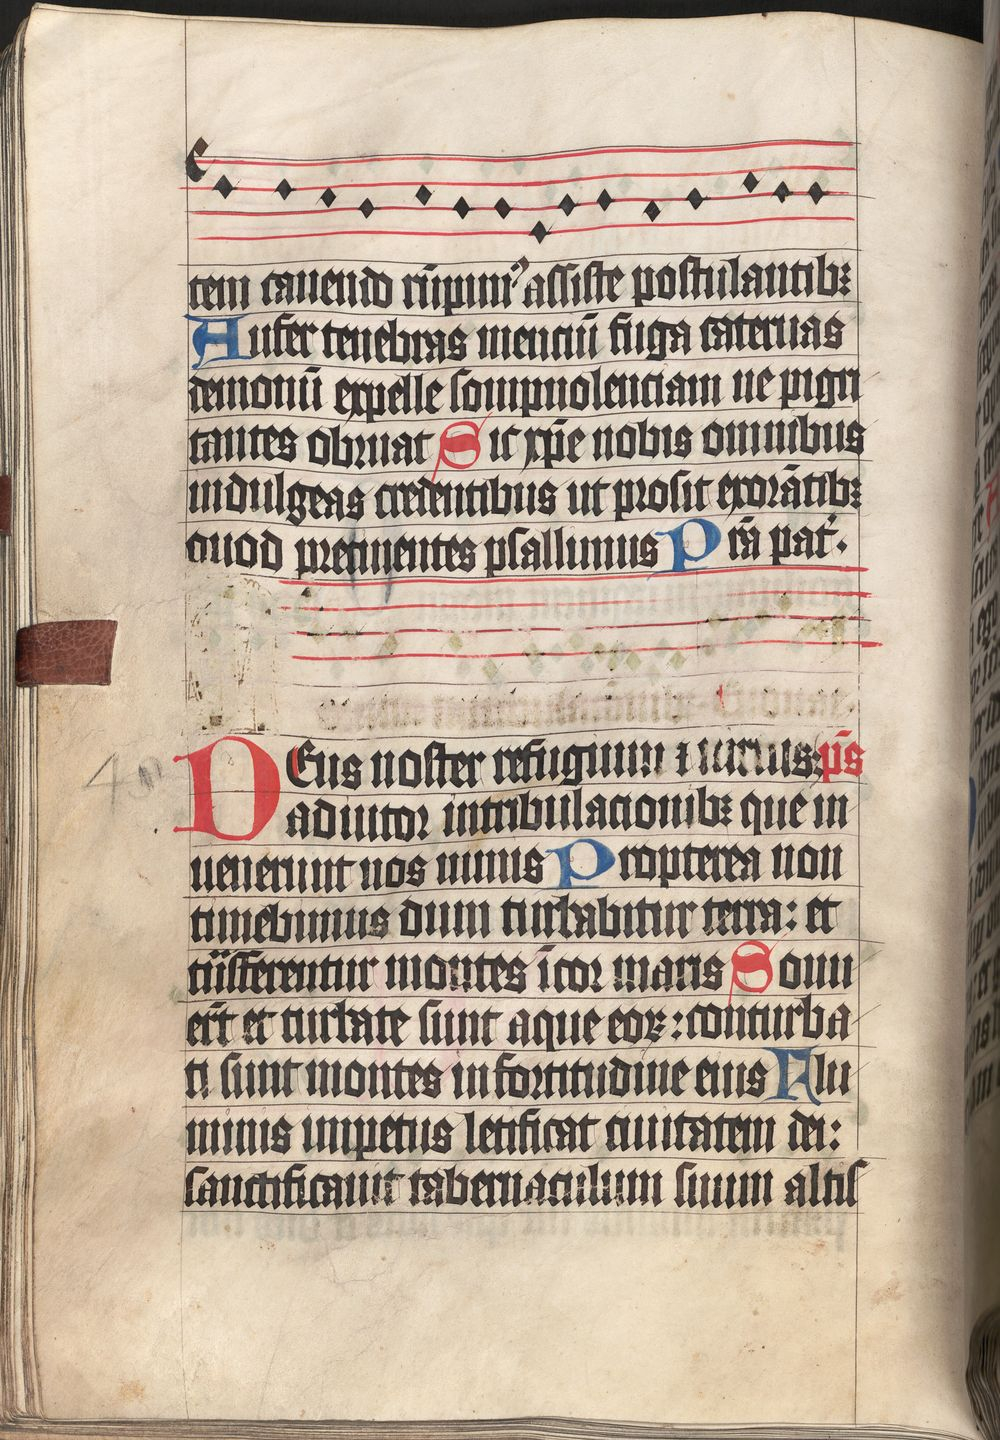 tem canendo rūpimꝰ assiste postulantibꝫ
Aufer tenebras menciū fuga cateruas
demonū expelle sompnolenciam ne pigri
tantes obruat Sic xp̄e nobis omnibus
indulgeas credentibus ut prosit exorātibꝫ
quod precinentes psallimus Prā pat̄.
DEus noster refugium ⁊ uirtus: ps̄
adiutor in tribulacionibꝫ que in
uenerunt nos nimis Propterea non
timebimus dum turbabitur terra: et
trāsferentur montes ī cor maris Sonu
er̄t et turbate sunt aque eoꝝ: conturba
ti sunt montes in fortitudine eius Flu
minis impetus letificat ciuitatem dei:
sanctificauit tabernaculum suum altis
40